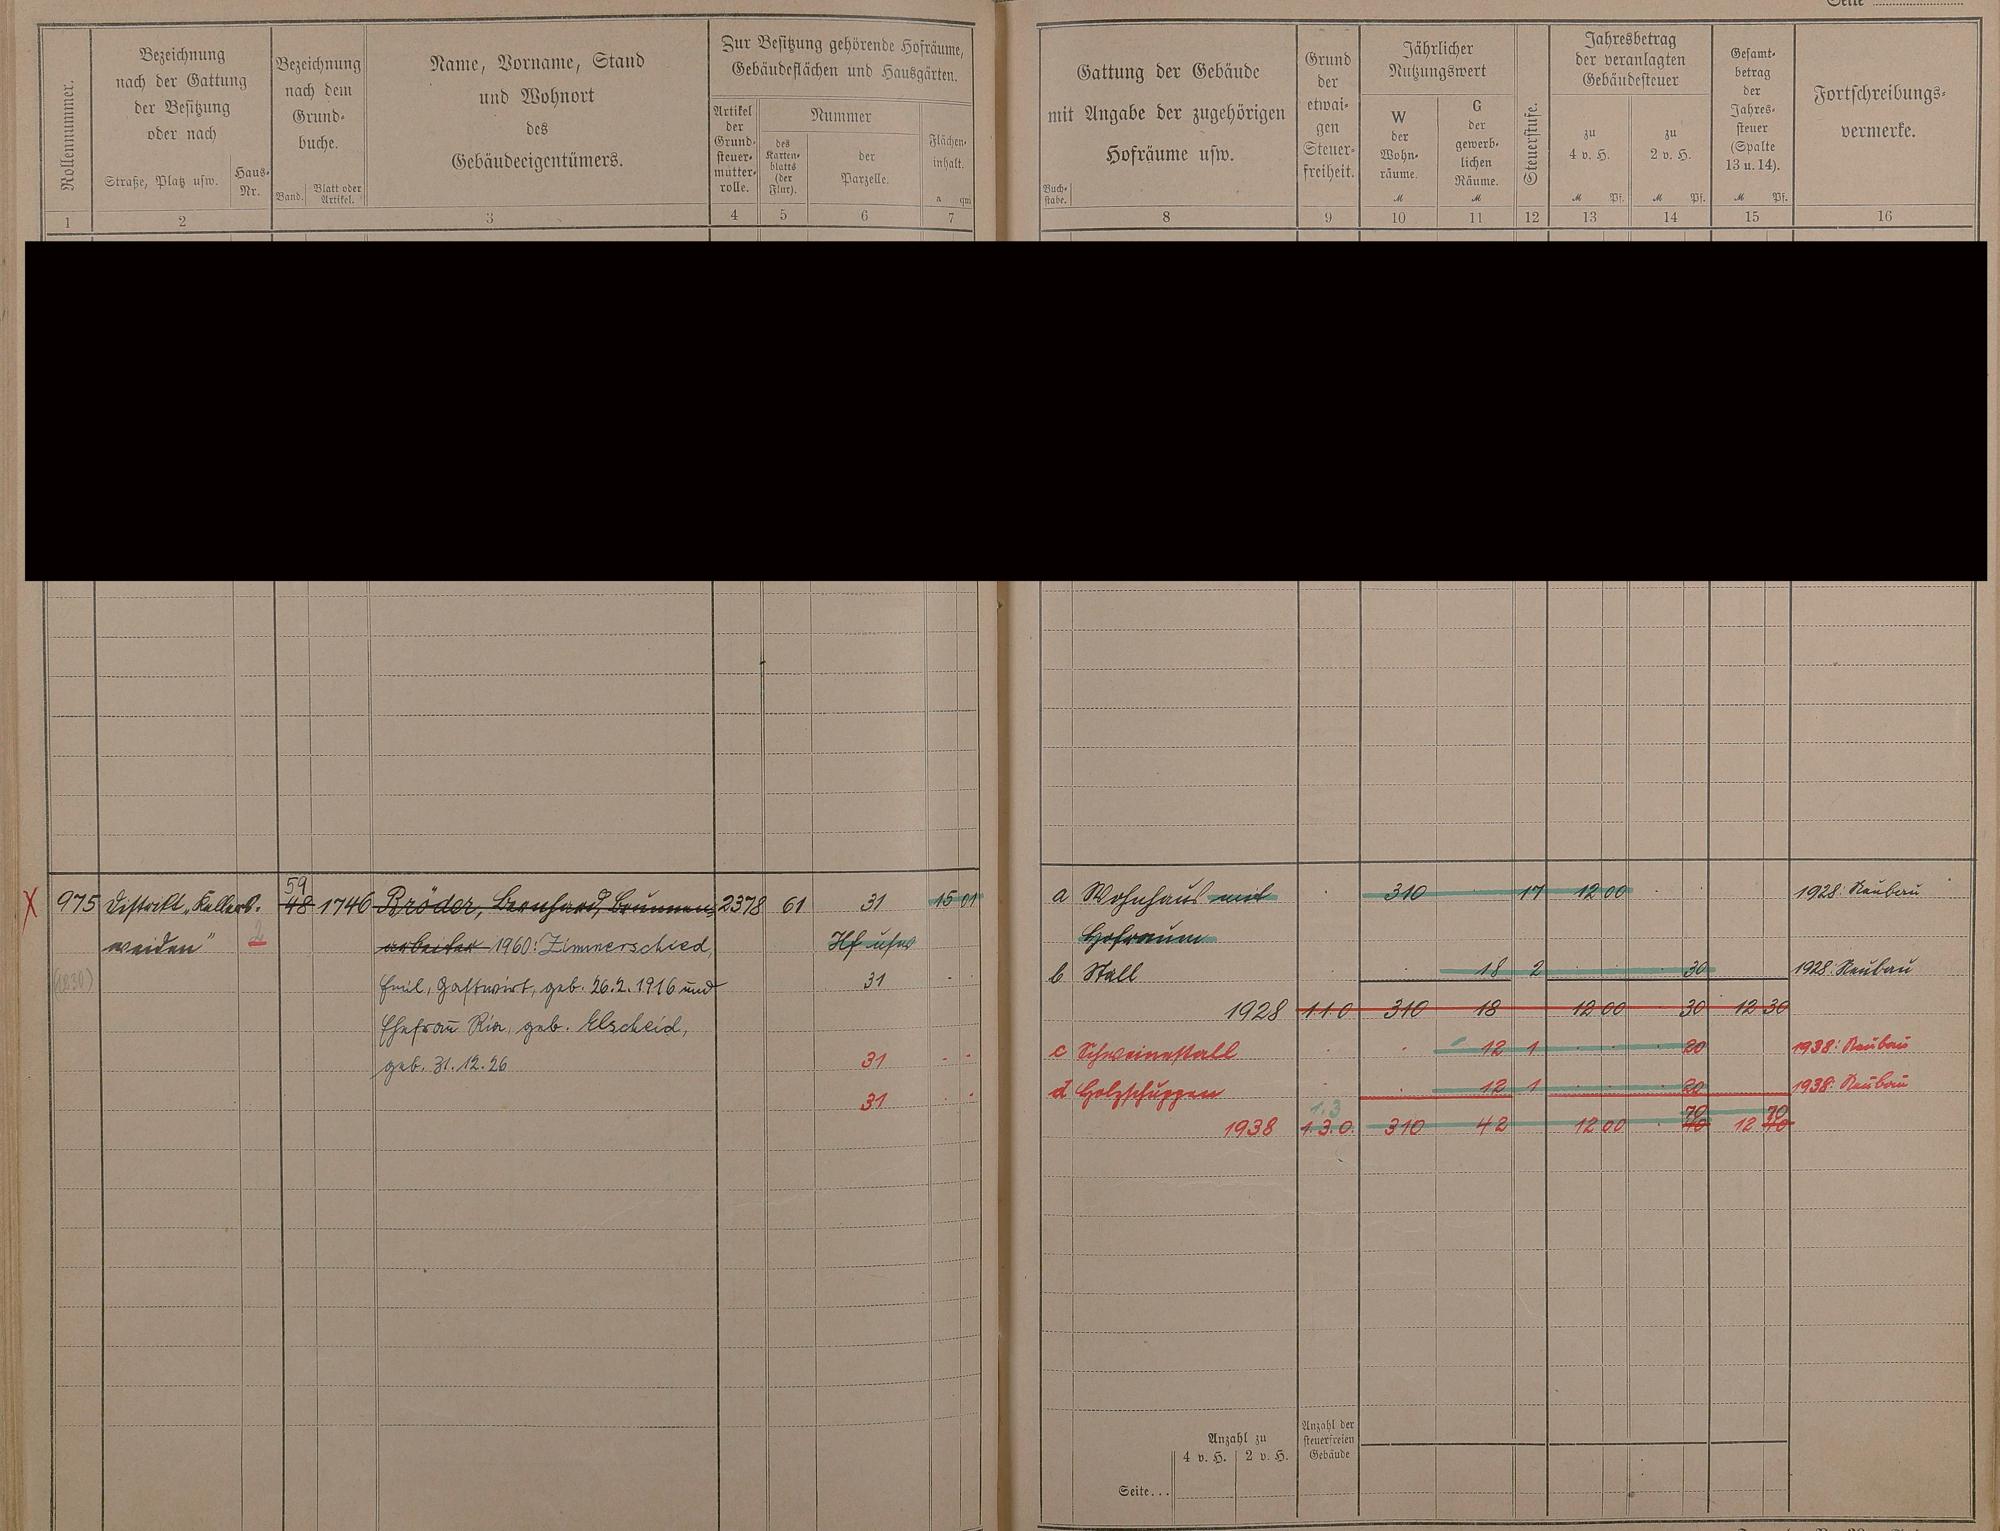 Seite
Rollennummer.
Bezeichnung
nach der Gattung
der Besitzung
oder nach
Straße, Platz usw.
Haus-
Nr.
Bezeichnung
nach dem
Grund-
buche.
Band.
Blatt oder
Artikel.
Name, Vorname, Stand
und Wohnort
des
Gebäudeeigentümers.
Zur Besitzung gehörende Hofräume,
Gebäudeflächen und Hausgärten.
Artikel
der
Grund-
steuer-
mutter-
rolle.
Nummer
des
Karten-
blatts
(der
Flur).
der
Parzelle.
Flächen-
inhalt.
a qm
Gattung der Gebäude
mit Angabe der zugehörigen
Hofräume usw.
Buch-
stabe.
Grund
der
etwai-
gen
Steuer-
freiheit.
Jährlicher
Nutzungswert
W
der
Wohn-
räume.
M
G
der
gewerb-
lichen
Räume.
M
Steuerstufe.
Jahresbetrag
der veranlagten
Gebäudesteuer
zu
4 v. H.
M Pf.
zu
2 v. H.
M Pf.
Gesamt-
betrag
der
Jahres-
steuer
(Spalte
13 u. 14).
M Pf.
Fortschreibungs-
vermerke.
1 2 3 4 5 6 7 8 9 10 11 12 13 14 15 16
59
X 975 Distrikt „Kellers- 48 1746 Bröder, Bernhard, Brunnen- 2378 61 31 15 01
weiden" 2 arbeiter 1960: Zimmerschied, Hf usw
(1230) Emil, Gastwirt, geb. 26.2.1916 und 31
Ehefrau Ria, geb. Elscheid,
geb. 31.12.26 31
31
a Wohnhaus mit 310 17 12 00 1928: Neubau
Hofraum
b Stall 18 2 30 1928: Neubau
1928 1 1 0 310 18 12 00 30 12 30
c Schweinestall 12 1 20 1938: Neubau
d Holzschuppen 12 1 20 1938: Neubau
1.3 70 70
1938 1.3.0. 310 42 12 00 40 12 40
Anzahl zu
4 v. H. 2 v. H.
Anzahl der
steuerfreien
Gebäude
Seite...